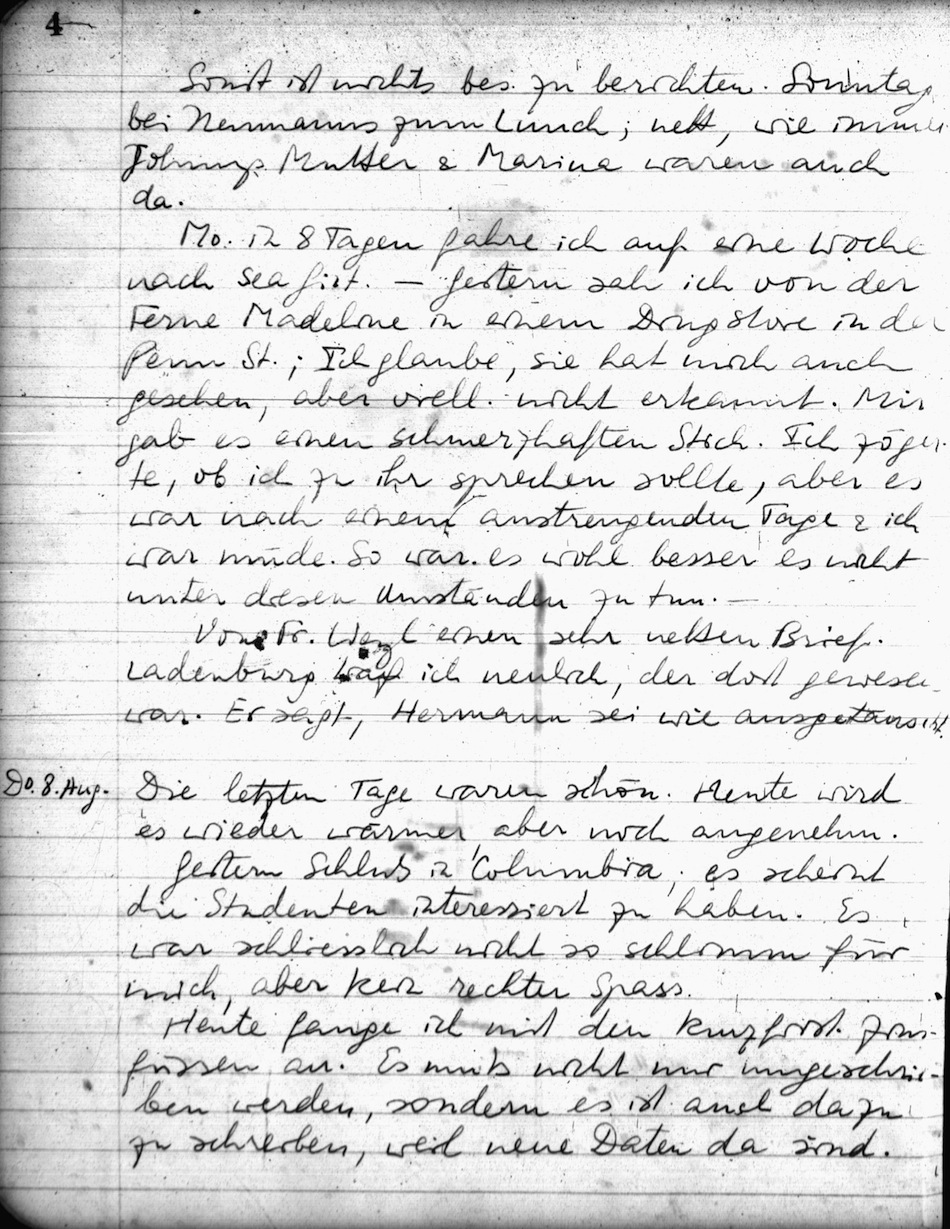 4
Sonst ist nichts bes. zu berichten. Sonntag
bei Neumanns zum Lunch; nett, wie immer.
Johnnys Mutter & Marina waren auch
da.
Mo. in 8 Tagen fahre ich auf eine Woche
nach Sea Girt. — Gestern sah ich von der
Ferne Madeline in einem Drugstore in der
Penn St.; Ich glaube, sie hat mich auch
gesehen, aber viell. nicht erkannt. Mir
gab es einen schmerzhaften Stich. Ich zöger-
te, ob ich zu ihr sprechen sollte, aber es
war nach einem anstrengenden Tage & ich
war müde. So war es wohl besser es nicht
unter diesen Umständen zu tun. —
Von Fr. Weyl einen sehr netten Brief.
Ladenburg traf ich neulich, der dort gewesen
war. Er sagt, Hermann sei wie ausgetauscht.
Do. 8. Aug. Die letzten Tage waren schön. Heute wird
es wieder wärmer, aber noch angenehm.
Gestern Schluss in Columbia; es scheint
die Studenten interessiert zu haben. Es
war schliesslich nicht so schlimm für
mich, aber kein rechter Spass.
Heute fange ich mit den kurzfrist. Zins-
füssen an. Es muss nicht nur umgeschrie-
ben werden, sondern es ist auch dazu
zu schreiben, weil neue Daten da sind.